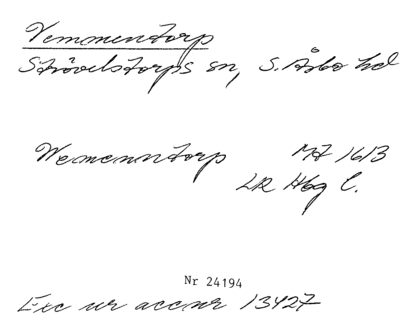 Vemmentorp
Strövelstorps sn, S. Åsbo hd
Wemenntorp M7 1613
LR Hbg l.
Nr 24194
Exc ur accnr 13427